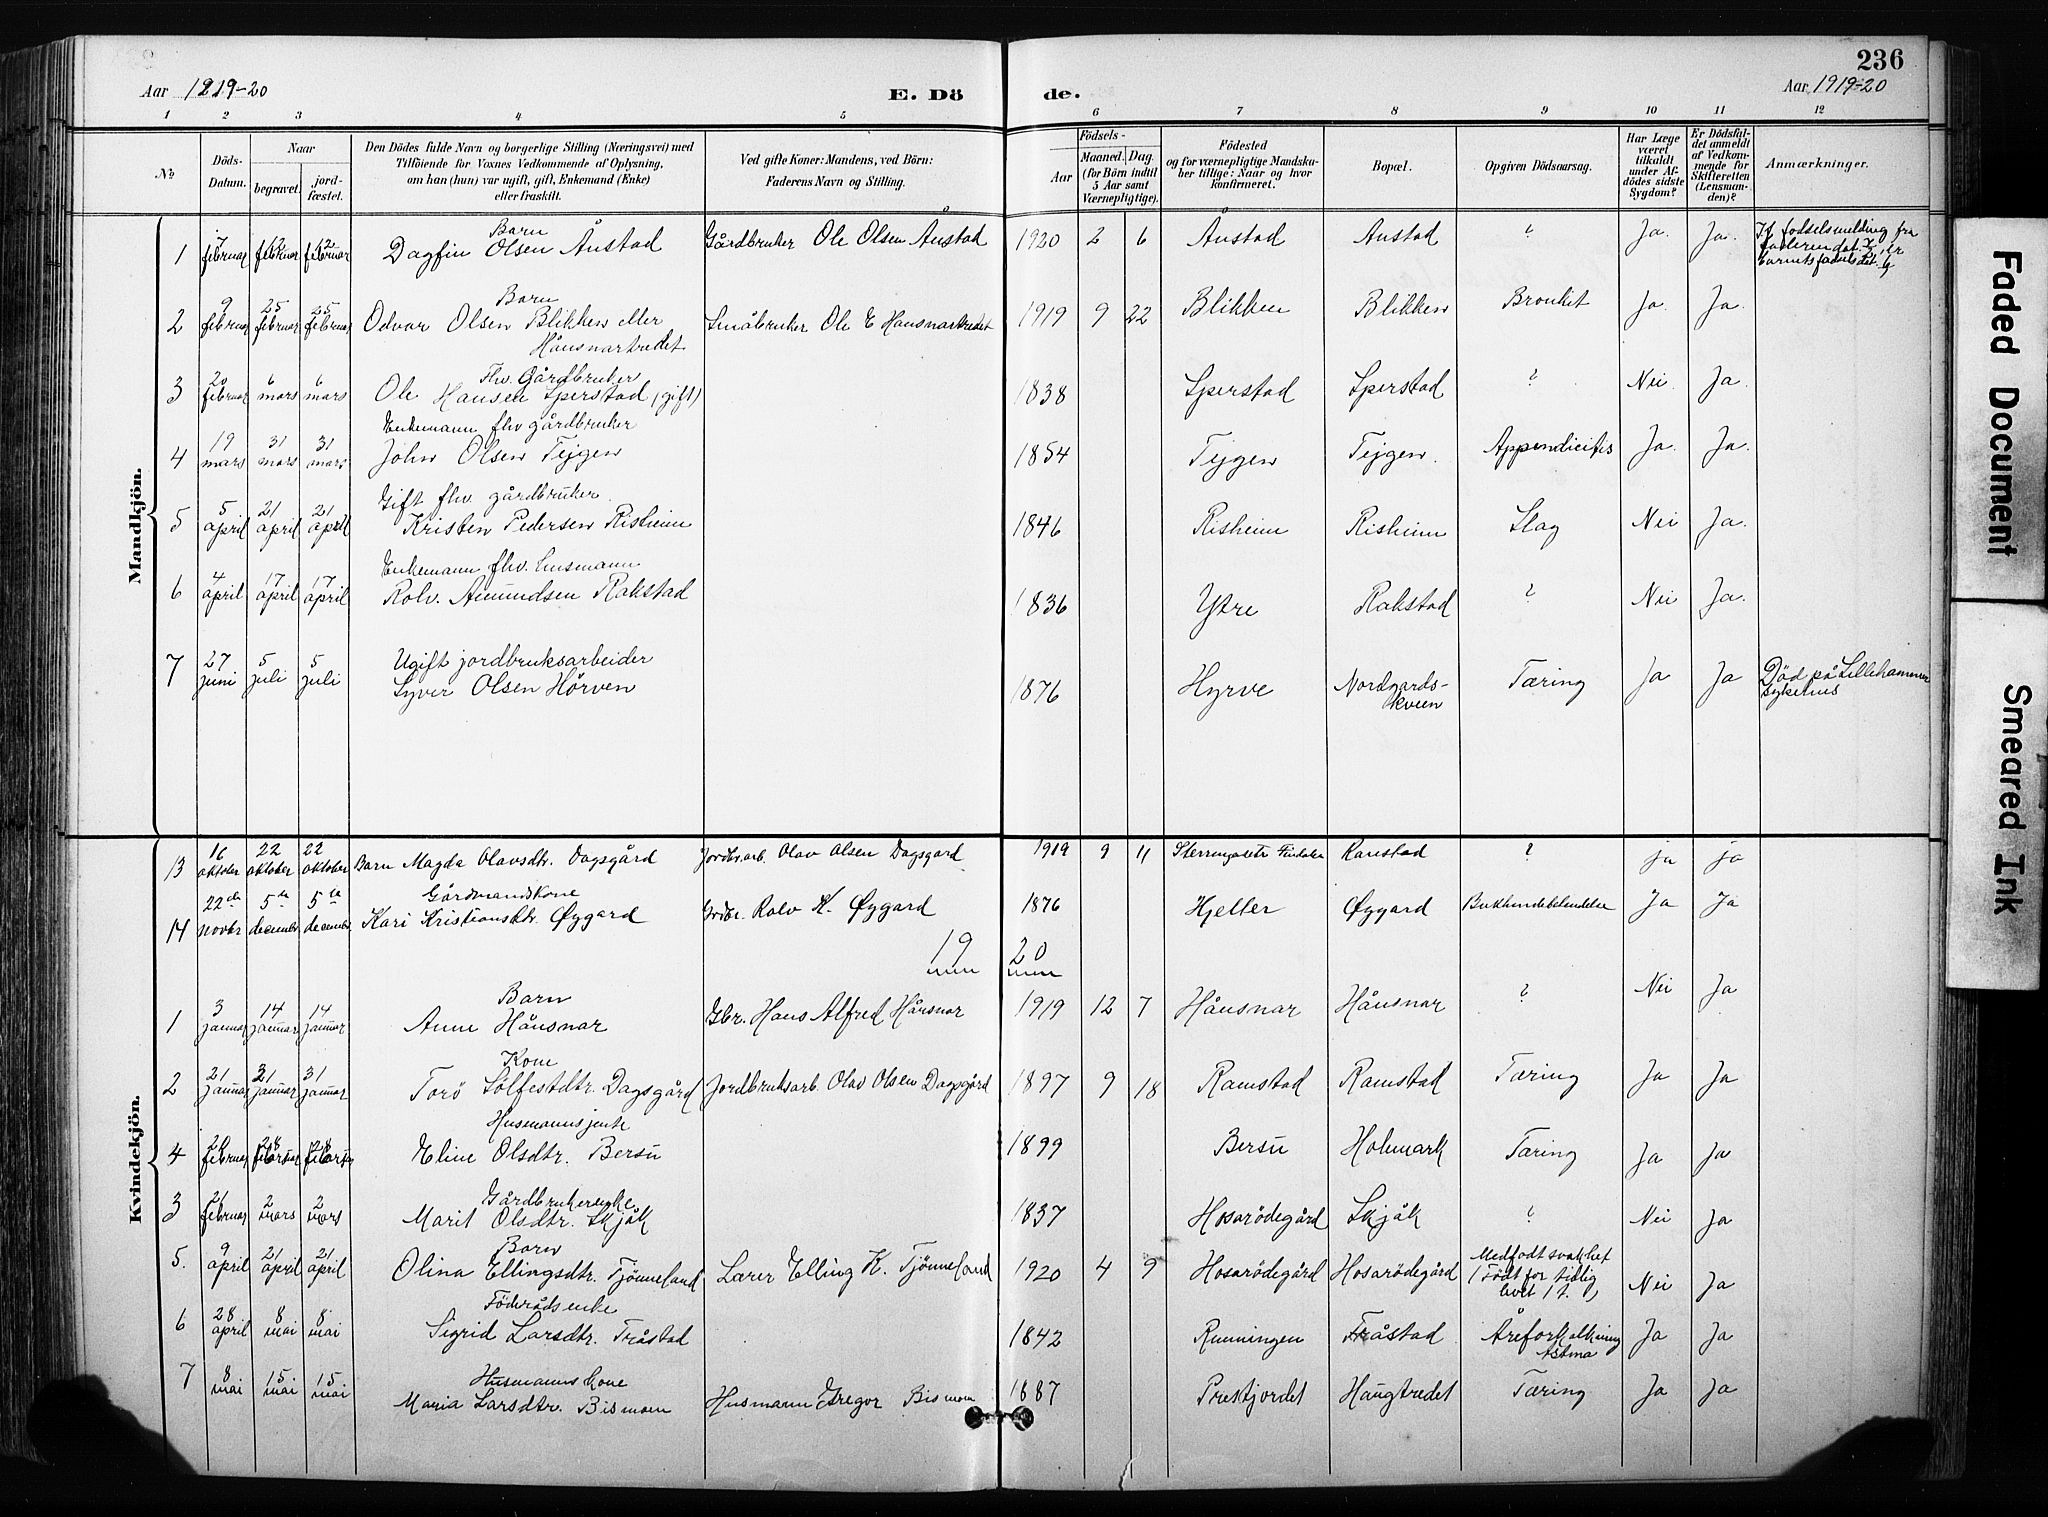 236
Aar 1919-20
E. Dö
de.
Aar 1919-20
1 2 3 4 5 6 7 8 9 10 11 12
No
Döds-Datum.
Naar
begravet.
jordfæstet.
Den Dödes fulde Navn og borgerlige Stilling (Næringsvei) med
Tilföiende for Voxnes Vedkommende af Oplysning,
om han (hun) var ugift, gift, Enkemand (Enke)
eller fraskilt.
Ved gifte Koner: Mandens, ved Börn:
Faderens Navn og Stilling.
Födsels-
Aar
Maaned. Dag.
(for Börn indtil
5 Aar samt
Værnepligtige).
Födested
og for værnepligtige Mandskaber tillige: Naar og hvor
konfirmeret.
Bopæl.
Opgiven Dödsaarsag.
Har Læge
været
tilkaldt
under Afdödes sidste
Sygdom?
Er Dödsfaldet anmeldt
af Vedkommende for
Skifteretten
(Lensmanden)?
Anmærkninger.
Mandkjön.
1 7 februar 12 februar 12 februar Barn Dagfin Olsen Åustad Gårdbruker Ole Olsen Åustad 1920 2 6 Åustad Austad ? Ja. Ja. fodselsmelding fra
2 9 februar 25 februar 25 februar Barn Odvar Olsen Blikken eller Hånsnartrædet Småbruker Ole E Hansnartrædet 1919 9 22 Blikken Blikken Bronkit Ja. Ja.
3 20 februar 6 mars 6 mars Fhv. Gårdbruker Ole Hansen Sperstad (gift) 1838 Sperstad Sperstad ? Nei Ja.
4 19 mars 31 mars 31 mars Enkemann fhv gårdbruker John Olsen Teigen 1854 Teigen Teigen. Appendicites Ja. Ja.
5 5 april 21 april 21 april Gift fhv. gårdbruker. Kristen Pedersen Risheim 1846 Risheim Risheim Slag Nei Ja.
6 4 april 17 april 17 april Enkemann fhv. husmann Rolv. Amundsen Rakstad 1836 Ytre Rakstad ? Nei Ja.
7 27 juni 5 juli 5 juli Ugift jordbruksarbeider Syver Olsen Hörven 1876 Hyrve Nordgards-kveen Tæring Ja Ja Död på Lillehammer sykehus
Kvindekjön.
13 16 oktober 22 oktober 22 oktober Barn Magda Olavsdtr. Dagsgård Jordbr.arb. Olav Olsen Dagsgard 1919 9 11 Ramstad ? ja ja
14 22de novbr 5te december 5te december Gårdmandskone Kari Kristiansdtr. Øygard Grdbr. Rolv K. Øygard 1876 Hjelter Øygard Bukhindebetendelse Ja Ja
19 20
1 3 januar 14 januar 14 januar Barn Anne Hånsnar Gbr. Hans Alfred Hånsnar 1919 12 7 Hånsnar Hånsnar ? Nei Ja
2 21 januar 31 januar 31 januar Kone Torö Solfestdtr. Dagsgård Jordbruksarb. Olav Olsen Dagsgård 1897 9 18 Ramstad Ramstad Tæring Ja Ja
4 20 februar 28 februar 28 februar Husmannsjente Eline Olsdtr. Bersu 1899 Bersu Holmark Tæring Ja Ja
3 21 februar 2 mars 2 mars Gårdbrukerenke Marit Olsdtr. Skjåk 1837 Hosarödegård Skjåk ? Nei Ja
5. 9 april 21 april 21 april Barn Olina Ellingsdtr. Tjönneland Lærer Elling K. Tjönneland 1920 4 9 Hosarödegård Hosarödegård Medfödt svakhet (Födt for tidlig Nei Ja
6 28 april 8 mai 8 mai Föderådsenke Sigrid Larsdtr. Fråstad 1842 Runningen Fråstad Åreforkalkning Astma Ja Ja
7 8 mai 15 mai 15 mai Husmanns kone Maria Larsdtr. Bismoen Husmann Gregor Bismoen 1887 Prestjordet Haugtrædet Tæring Ja Ja
Faded Document
Smeared Ink